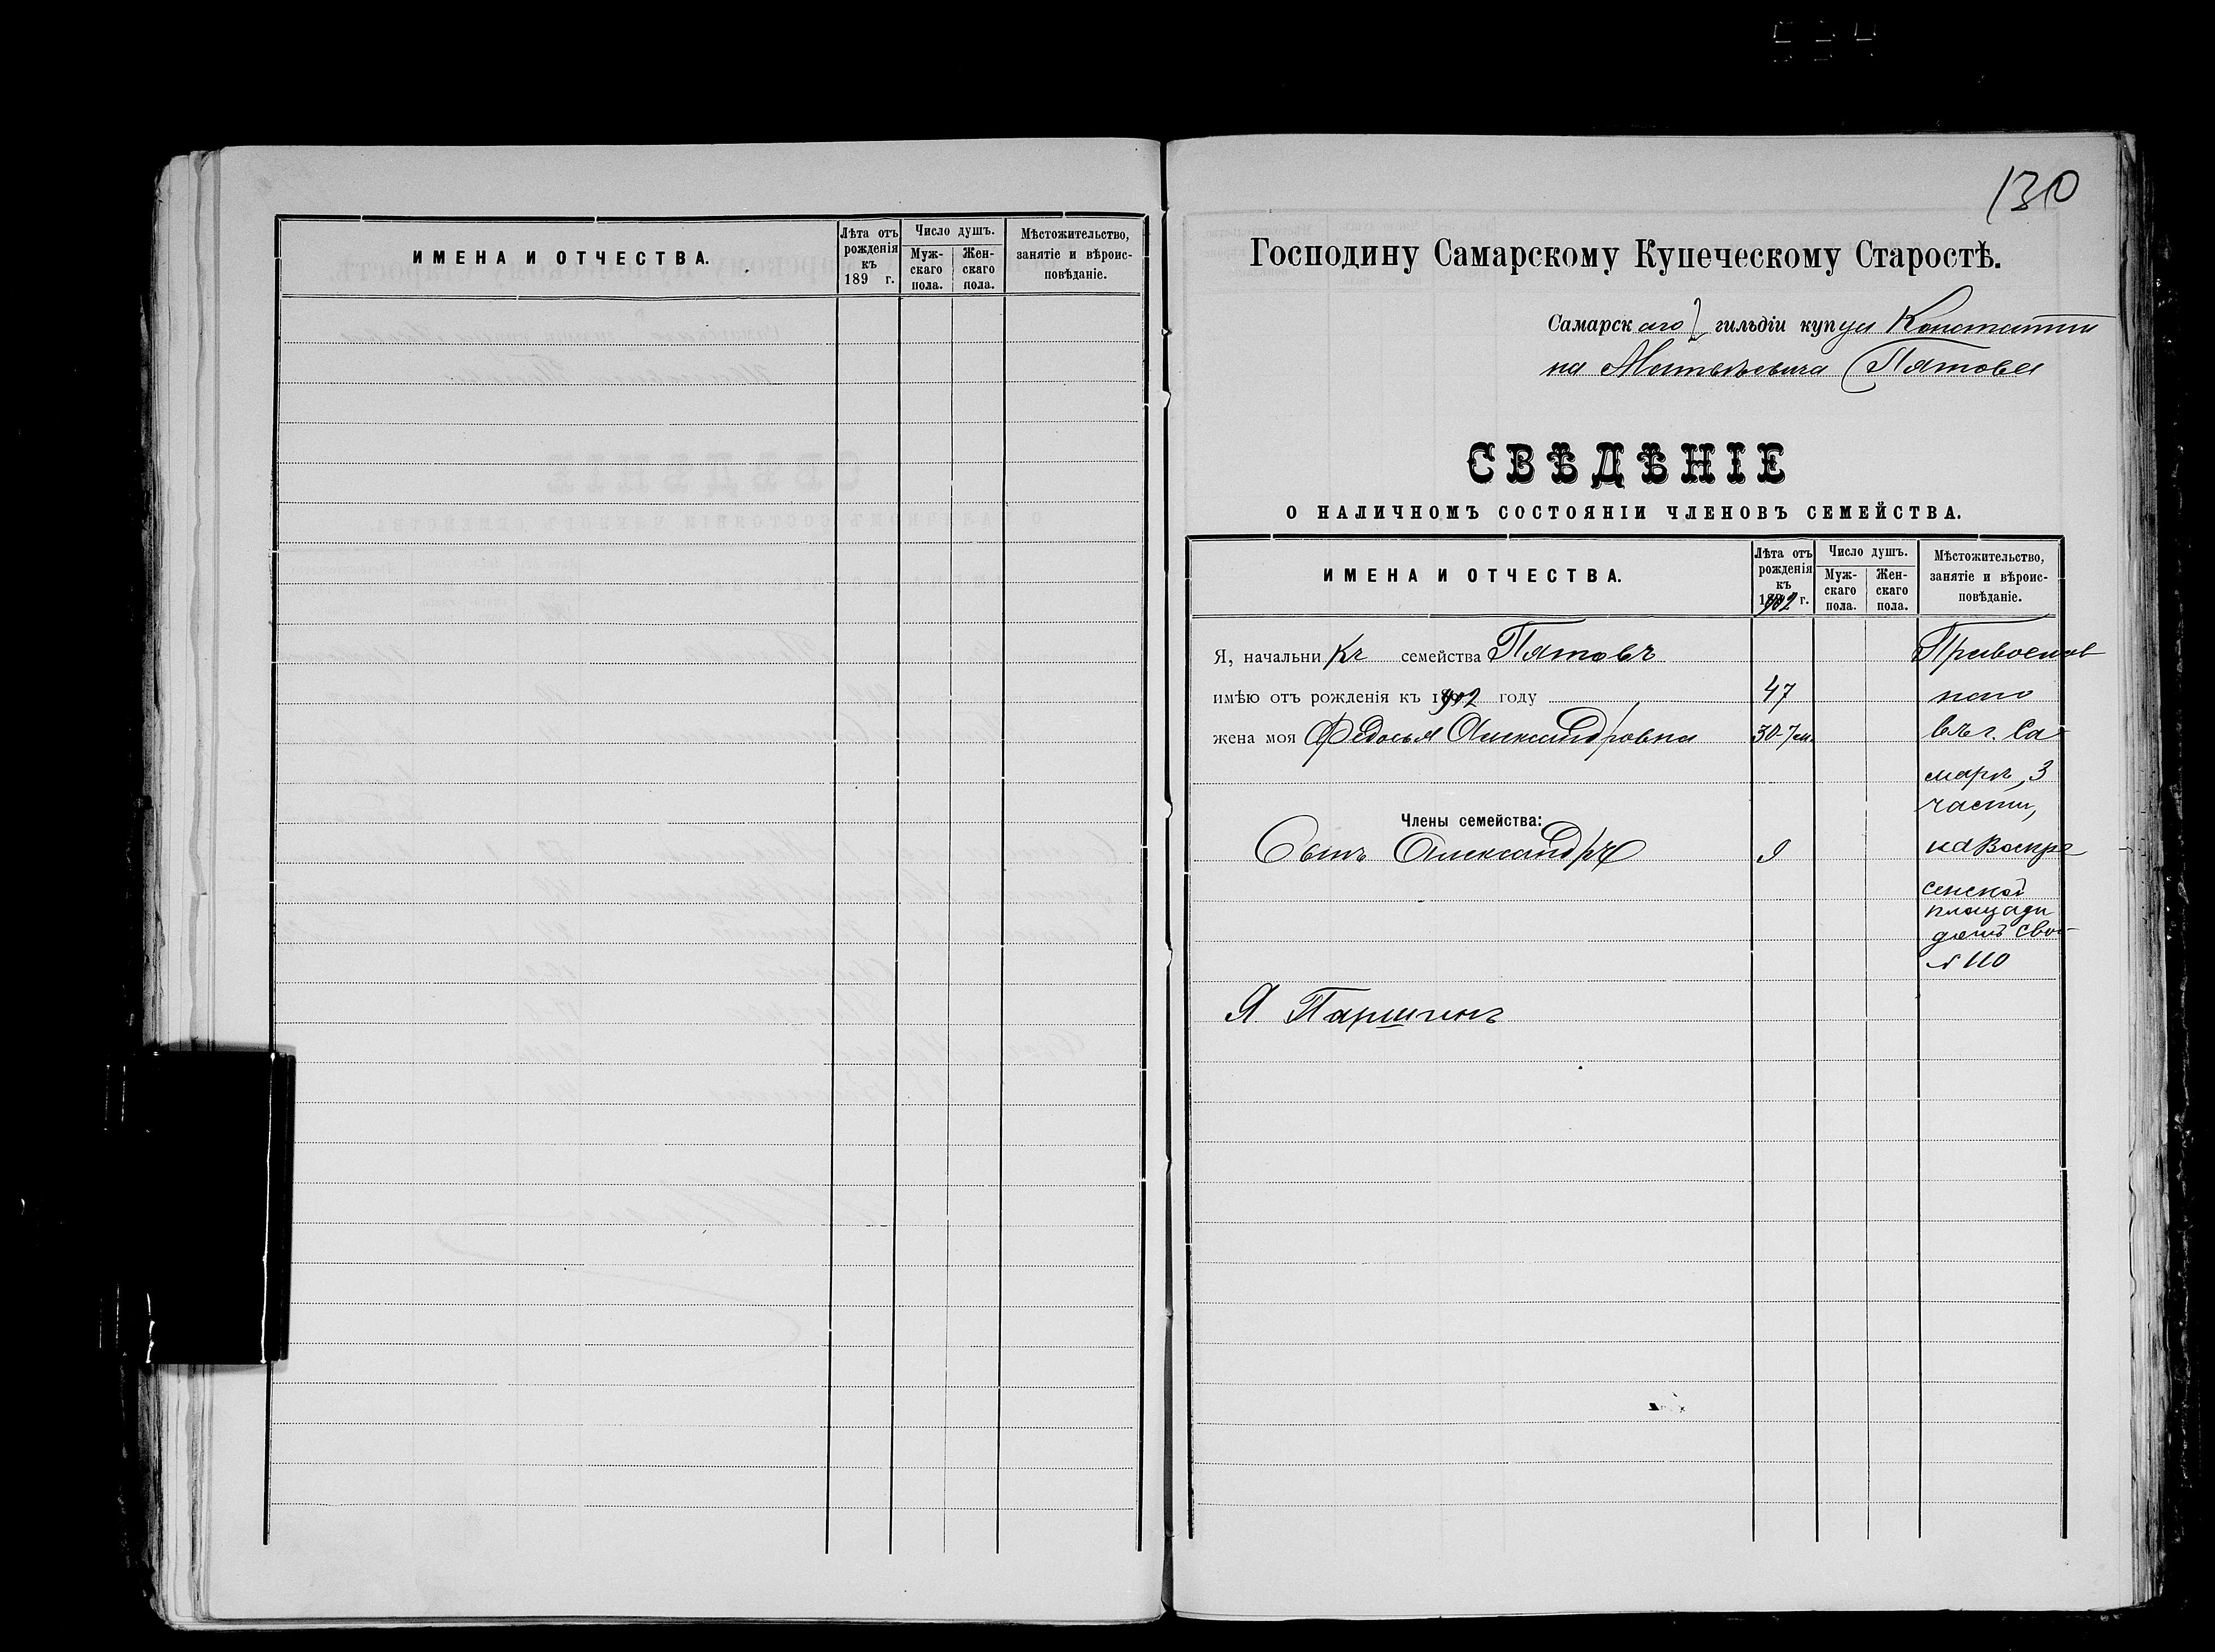 ИМЕНА И ОТЧЕСТВА.
Лѣта отъ рожденія къ 189 г.
Число душъ.
Муж-скаго пола.
Жен-скаго пола.
Мѣстожительство, занятіе и вѣроис-повѣданіе.
130
Господину Самарскому Купеческому Старостѣ.
Самарскаго 2 гильдіи купца Константи
на Матвѣевича Пятова
СВѢДѢНІЕ
О НАЛИЧНОМЪ СОСТОЯНІИ ЧЛЕНОВЪ СЕМЕЙСТВА.
ИМЕНА И ОТЧЕСТВА.
Лѣта отъ рожденія къ 1902 г.
Число душъ.
Муж-скаго пола.
Жен-скаго пола.
Мѣстожительство, занятіе и вѣроис-повѣданіе.
Я, начальникъ семейства Пятовъ
имѣю отъ рожденія къ 1902 году 47
жена моя Федосья Александровна 30-7м.
въ г. Са-
марѣ, 3
части,
Члены семейства:
Сынъ Александръ 9 на Воскре
сенской
площади
домъ сво-
й 110
Я Паршинъ